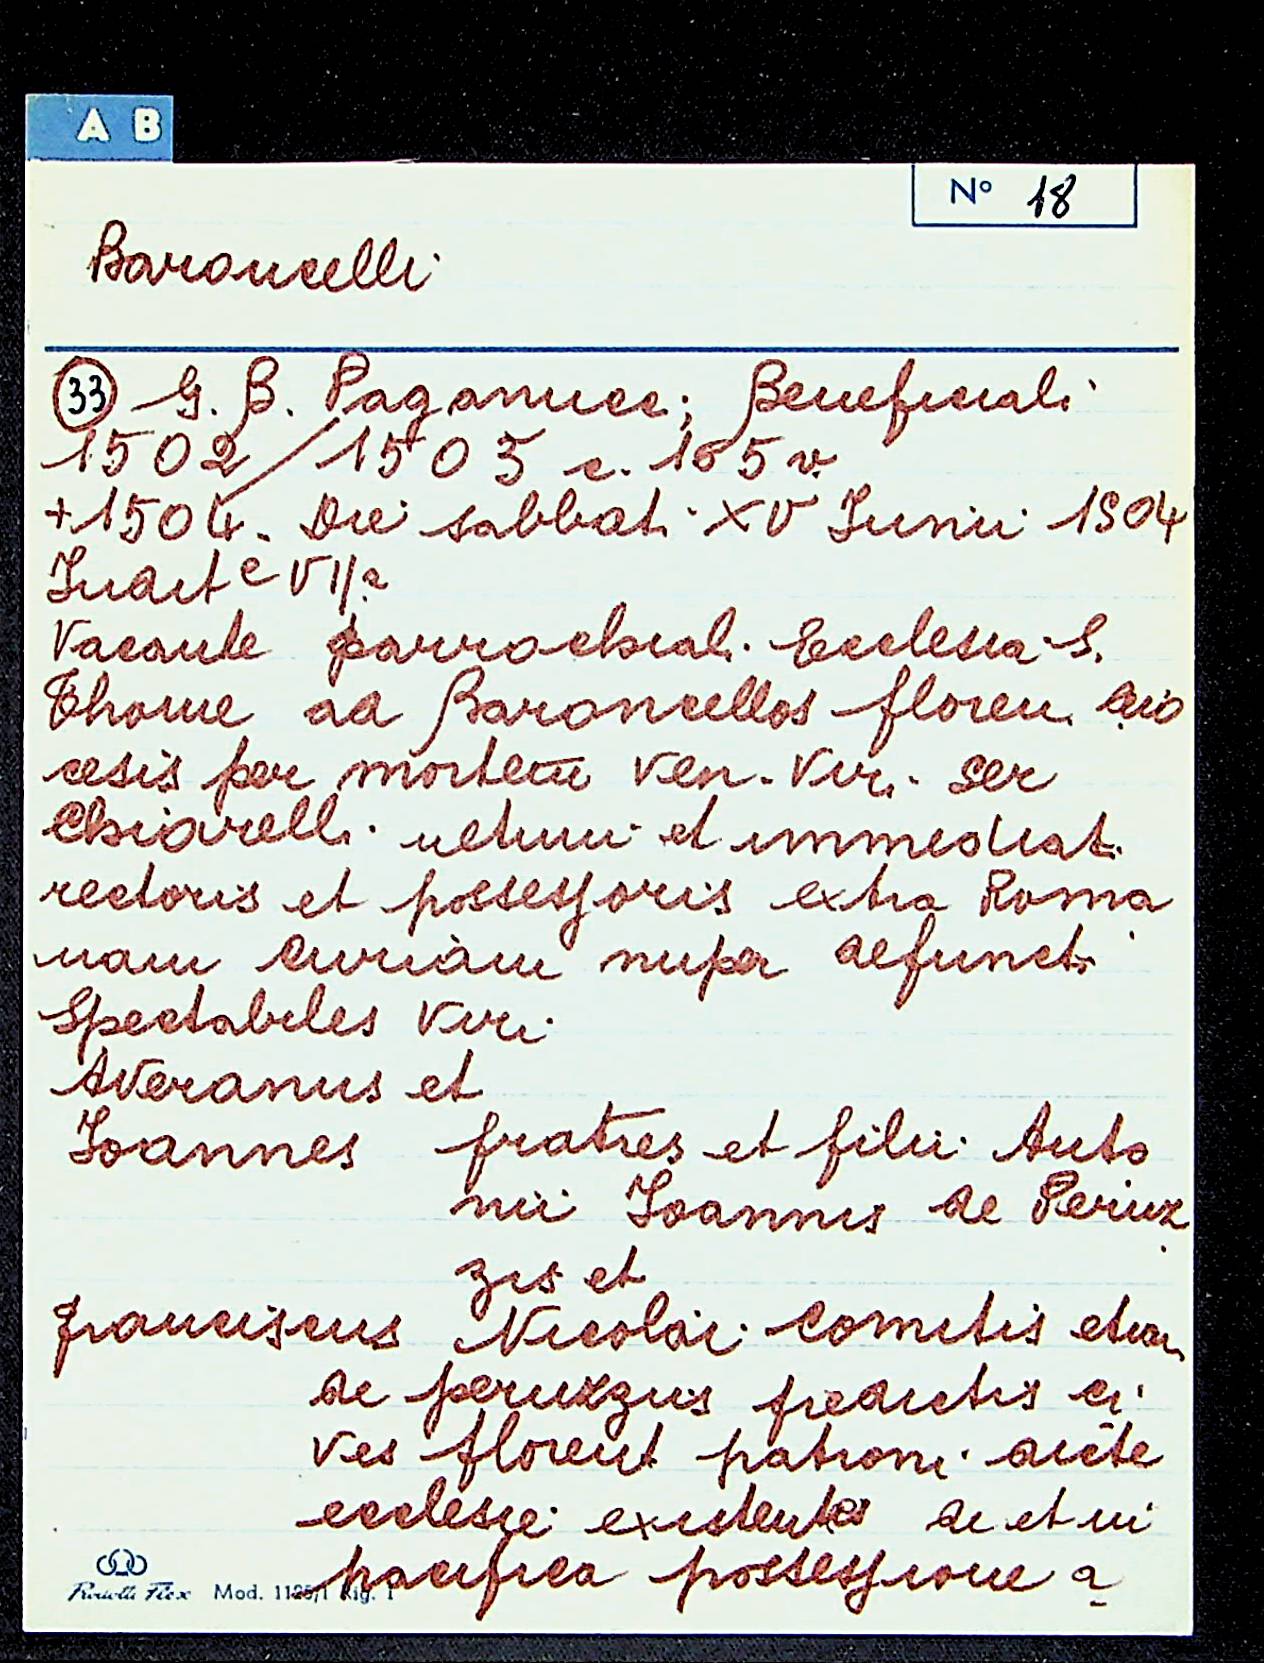 A B
N° 18
Baroncelli
33 G. B. Paganucci; Beneficiali
1502/1503 c. 165 v.
+1504. Die sabbati XV Junii 1504
Indict e VII a
Vacante parrochial. Ecclesia S.
Thome ad Baroncellos floren. dio
cesis per mortem ven. Viri. ser
Chiarelli ultimi et immediat.
rectoris et possessoris extra Roma
nam Curiam nuper defuncti
Spectabiles Viri
Averanus et
Joannes fratres et filii Anto
nii Joannis de Peruz
zis et
franciscus Nicolai Comitis etiam
de peruzzis predictis ci
ves florent patroni dicte
ecclesie existentes de et in
pacifica possessione a
Mod. 1125/1 Rig. 1